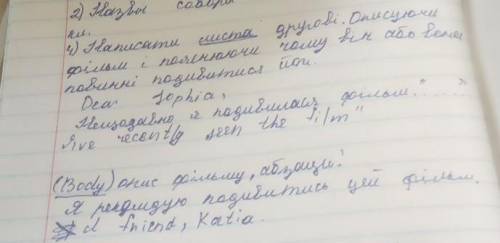 2) Назвы собори
ки.
4) Написати листа другові. Описуючи
фільм і пояснюючи чому він або вона
повинні подивитися його.
Dear Sophia,
Нещодавно я подивилася фільм "......"
I've recently seen the film"
(Body) опис фільму, абзаци!
Я рекомдую подивитись цей фільм.
friend, Katia.